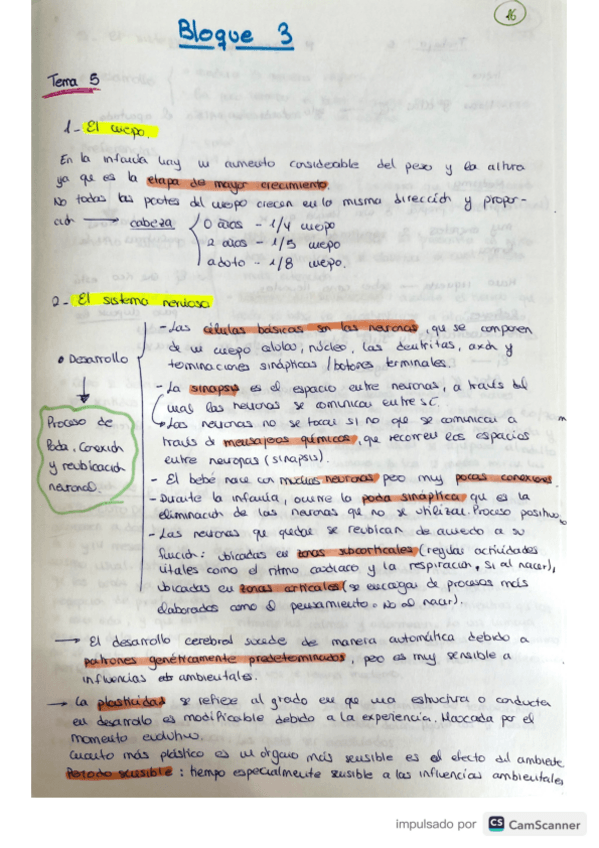 16
Bloque 3
Tema 5
1- El cuerpo.
En la infancia hay un aumento considerable del peso y la altura
ya que es la etapa de mayor crecimiento.
No todas las partes del cuerpo crecen en la misma dirección y propor-
ción → cabeza { 0 años - 1/4 cuerpo
2 años - 1/5 cuerpo
adulto - 1/8 cuerpo.
2- El sistema nervioso
• Desarrollo
↓
Proceso de
Poda, Conexión
y reubicación
neuronal.
- Las células básicas son las neuronas, que se componen
de un cuerpo celular, núcleo, las dentritas, axón y
terminaciones sinápticas / botones terminales.
- La sinapsis es el espacio entre neuronas, a través del
cual las neuronas se comunican entre sí.
Las neuronas no se tocan si no que se comunican a
través de mensajeros químicos, que recorren los espacios
entre neuronas (sinapsis).
- El bebé nace con muchas neuronas pero muy pocas conexiones.
- Durante la infancia, ocurre la poda sináptica que es la
eliminación de las neuronas que no se utilizan. Proceso positivo.
- Las neuronas que quedan se reubican de acuerdo a su
función: ubicadas en zonas subcorticales (regulan actividades
vitales como el ritmo cardiaco y la respiración, sí al nacer),
ubicadas en zonas corticales (se encargan de procesos más
elaborados como el pensamiento. No al nacer).
→ El desarrollo cerebral sucede de manera automática debido a
patrones genéticamente predeterminados, pero es muy sensible a
influencias ambientales.
→ La plasticidad se refiere al grado en que una estructura o conducta
en desarrollo es modificable debido a la experiencia. Marcada por el
momento evolutivo.
Cuanto más plástico es un órgano más sensible es al efecto del ambiente
Periodo sensible: tiempo especialmente sensible a las influencias ambientales
impulsado por CS CamScanner